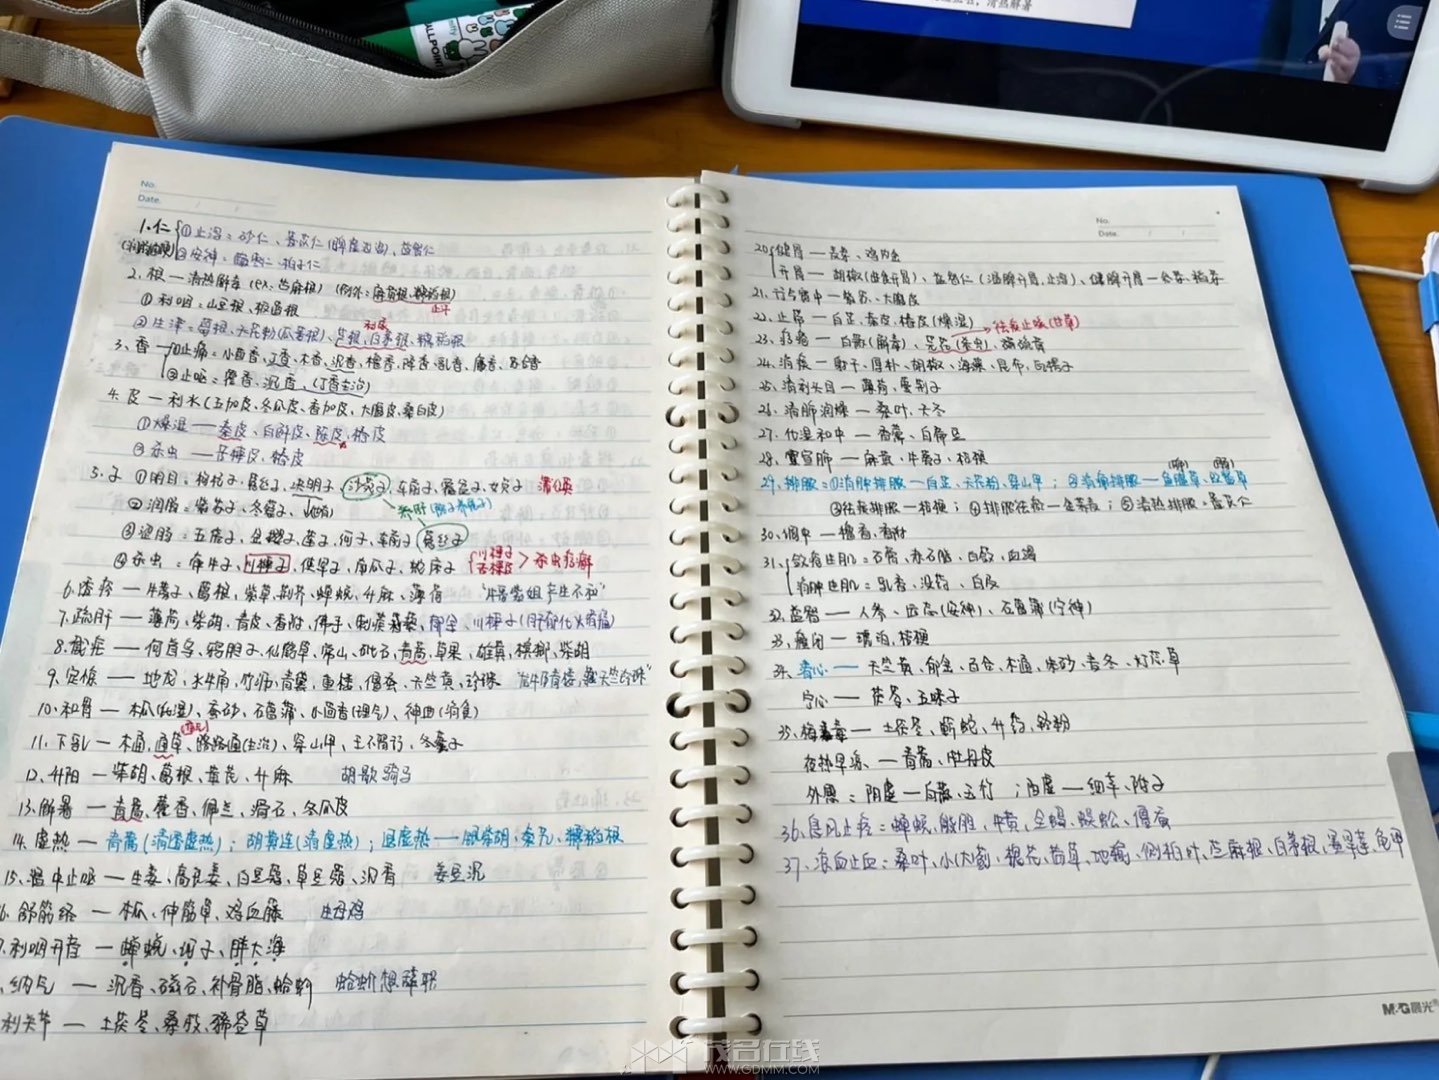 清热解毒
ALLPOINT
No.
Date.
1.仁 ①止泻：砂仁、薏苡仁(脾虚泄泻)、益智仁
(润肠通便) ②安神：酸枣仁、柏子仁
2.根—清热解毒 (除:苎麻根) (例外:麻黄根、糯稻根)
止汗
①利咽:山豆根、板蓝根
②生津:葛根、天花粉(瓜蒌根)、芦根、白茅根、糯稻根
3.香 ①止痛:小茴香、丁香、木香、沉香、檀香、降香、乳香、麝香、苏合香
②止呕:藿香、沉香、(丁香主治)
4.皮—利水(五加皮、冬瓜皮、香加皮、大腹皮、桑白皮)
①燥湿——秦皮、白鲜皮、陈皮、椿皮
②杀虫——苦楝皮、椿皮
5.子 ①明目:枸杞子、菟丝子、决明子、沙苑子、车前子、覆盆子、女贞子
②润肠:紫苏子、冬葵子、
养肝
③涩肠:五倍子、金樱子、莲子、诃子、车前子、菟丝子
④杀虫:牵牛子、川楝子、使君子、南瓜子、蛇床子 川楝子 苦楝皮 > 杀虫疗癣
6.透疹—牛蒡子、葛根、紫草、荆芥、蝉蜕、升麻、薄荷
7.疏肝—薄荷、柴胡、青皮、香附、佛手、刺蒺藜、郁金、川楝子
8.截疟—何首乌、鸦胆子、仙鹤草、常山、砒石、青蒿、草果、雄黄、槟榔、柴胡
9.定惊—地龙、水牛角、竹沥、青黛、重楼、僵蚕、天竺黄、珍珠
10.和胃—木瓜(化湿)、蚕砂、石菖蒲、小茴香(理气)、神曲(消食)
11.下乳—木通、通草、路路通(主治)、穿山甲、王不留行、冬葵子
12.升阳—柴胡、葛根、黄芪、升麻 胡歌骑马
13.解暑—青蒿、藿香、佩兰、滑石、冬瓜皮
14.虚热—青蒿(清透虚热);胡黄连(清虚热);退虚热——银柴胡、秦艽、糯稻根
15.温中止呕—生姜、高良姜、白豆蔻、草豆蔻、沉香 姜豆沉
6.舒筋络—木瓜、伸筋草、鸡血藤
7.利咽开音—蝉蜕、诃子、胖大海
纳气—沉香、磁石、补骨脂、蛤蚧
利关节—土茯苓、桑枝、豨莶草
No.
Date.
20.健胃—
开胃—胡椒
21.行气宽中—紫苏、大腹皮
22.止带—白芷、秦皮、椿皮(燥湿)
祛痰止咳
23.疗疮—
24.消痰—射干、厚朴、胡椒、海藻、昆布、
25.清利头目—薄荷、蔓荆子
26.清肺润燥—桑叶、天冬
27.化湿和中—香薷、白扁豆
28.宣肺—麻黄、牛蒡子、桔梗
29.排脓:①消肿排脓—白芷、天花粉、穿山甲;②消痈排脓—鱼腥草、败酱草
③祛痰排脓—桔梗;④排脓祛瘀—金荞麦;⑤清热排脓—薏苡仁
30.调中—檀香、香附
31.敛疮生肌—石膏、赤石脂、白蔹、血竭
消肿生肌—乳香、没药、白及
32.益智—人参、远志(安神)、石菖蒲(宁神)
33.癃闭—琥珀、桔梗
34.清心—天竺黄、郁金、百合、木通、朱砂、麦冬、灯芯草
宁心—茯苓、五味子
35.梅毒—土茯苓、蕲蛇、升药、轻粉
夜热早凉—青蒿、牡丹皮
外感:阴虚—白薇、玉竹;阳虚—细辛、附子
36.息风止痉:蝉蜕、熊胆、牛黄、全蝎、蜈蚣、僵蚕
37.凉血止血:桑叶、小(大)蓟、槐花、茜草、地榆、侧柏叶、苎麻根、白茅根、墨旱莲、龟甲
M&G晨光
茂名在线
WWW.GDMM.COM